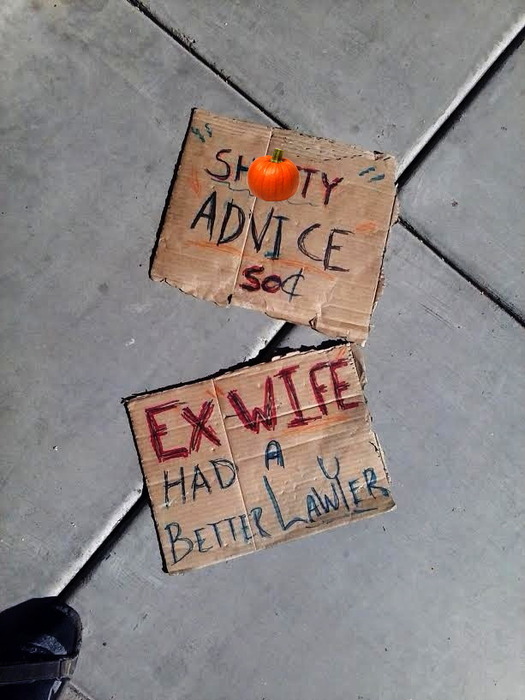 ADVICE
50¢
EX-WIFE
HAD A
BETTER LAWYER